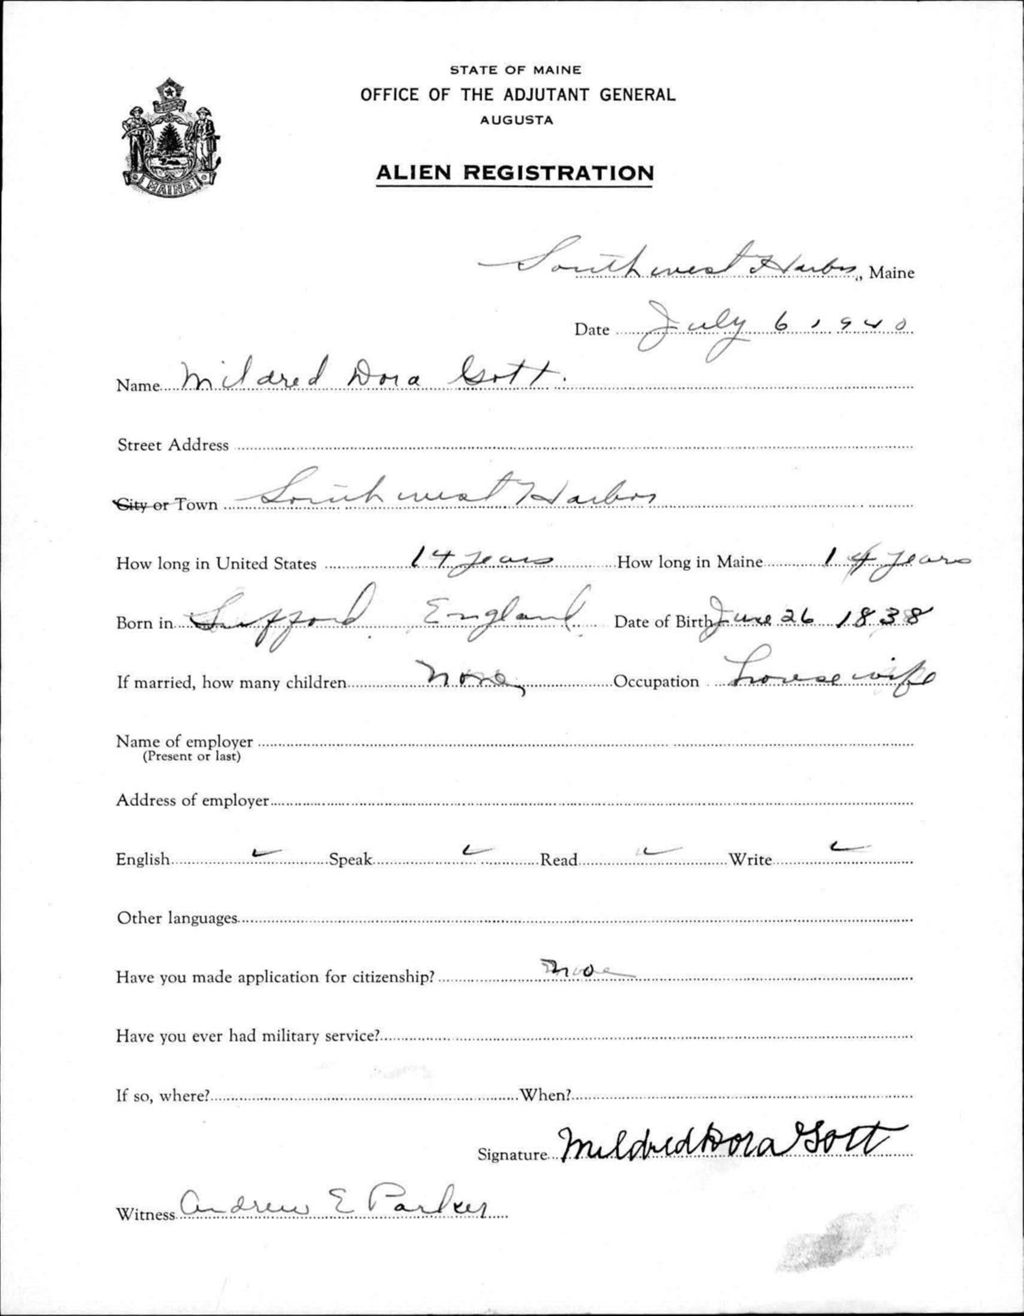 STATE OF MAINE
OFFICE OF THE ADJUTANT GENERAL
AUGUSTA
ALIEN REGISTRATION
MAINE
Southwest Harbor, Maine
Date July 6, 1940
Name Mildred Dora Gott.
Street Address
City or Town Southwest Harbor
How long in United States 14 years How long in Maine 14 years
Born in England Date of Birth June 26 1838
If married, how many children None Occupation housewife
Name of employer
(Present or last)
Address of employer
English ✓ Speak ✓ Read ✓ Write ✓
Other languages
Have you made application for citizenship?
Have you ever had military service?
If so, where? When?
Signature Mildred Dora Gott
Witness Andrew E Parker